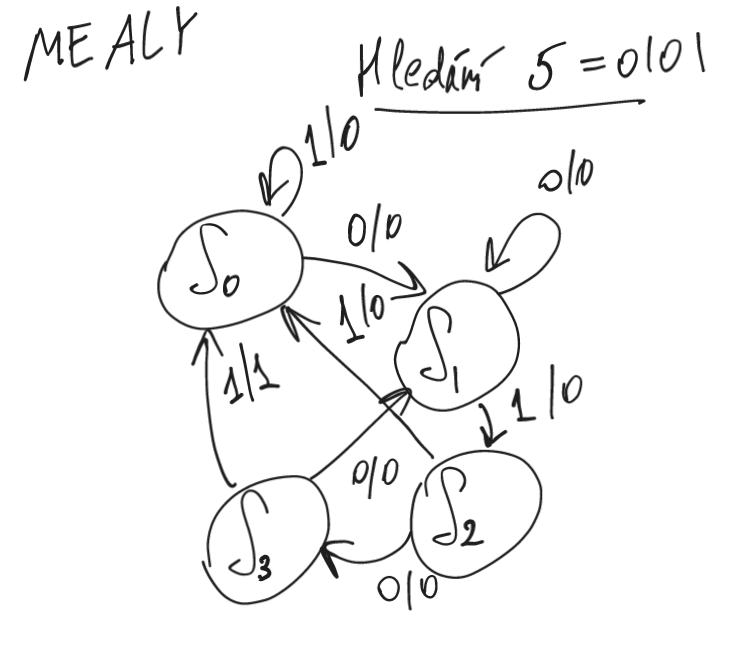 MEALY
Hledání 5 = 0101
1/0
0/0
0/0
S0
1/0
S1
1/1
1/0
0/0
S2
S3
0/0